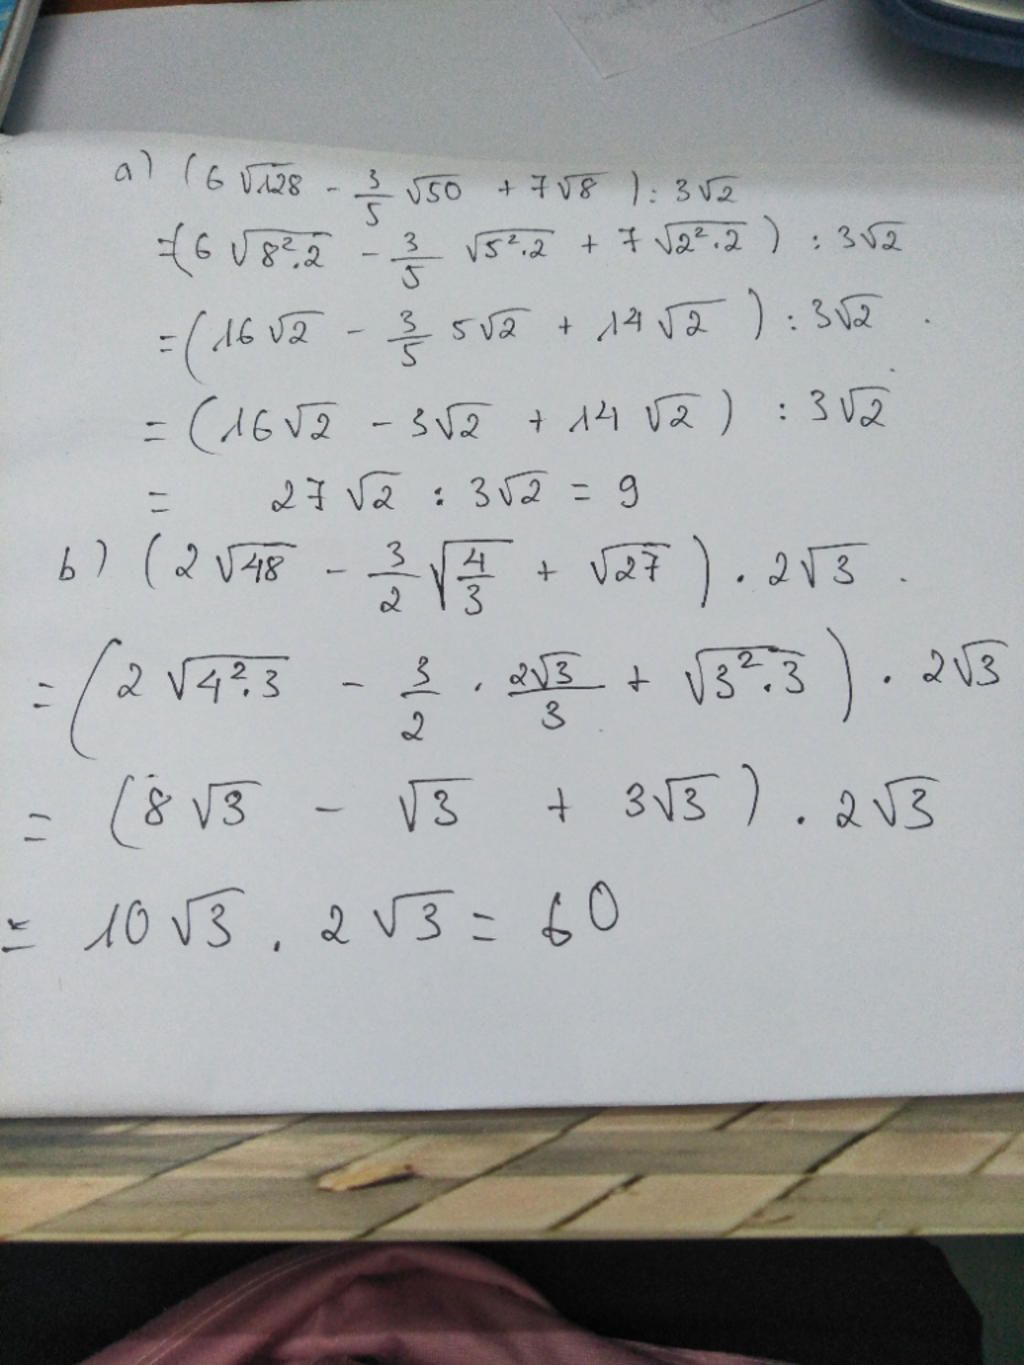 a) (6√128 - 3/5 √50 + 7√8) : 3√2
=(6√8².2 - 3/5 √5².2 + 7√2².2) : 3√2
=(16√2 - 3/5 5√2 + 14√2) : 3√2
=(16√2 - 3√2 + 14√2) : 3√2
= 27√2 : 3√2 = 9
b) (2√48 - 3/2 √4/3 + √27) . 2√3
=(2√4².3 - 3/2 . 2√3/3 + √3².3) . 2√3
= (8√3 - √3 + 3√3) . 2√3
= 10√3 . 2√3 = 60